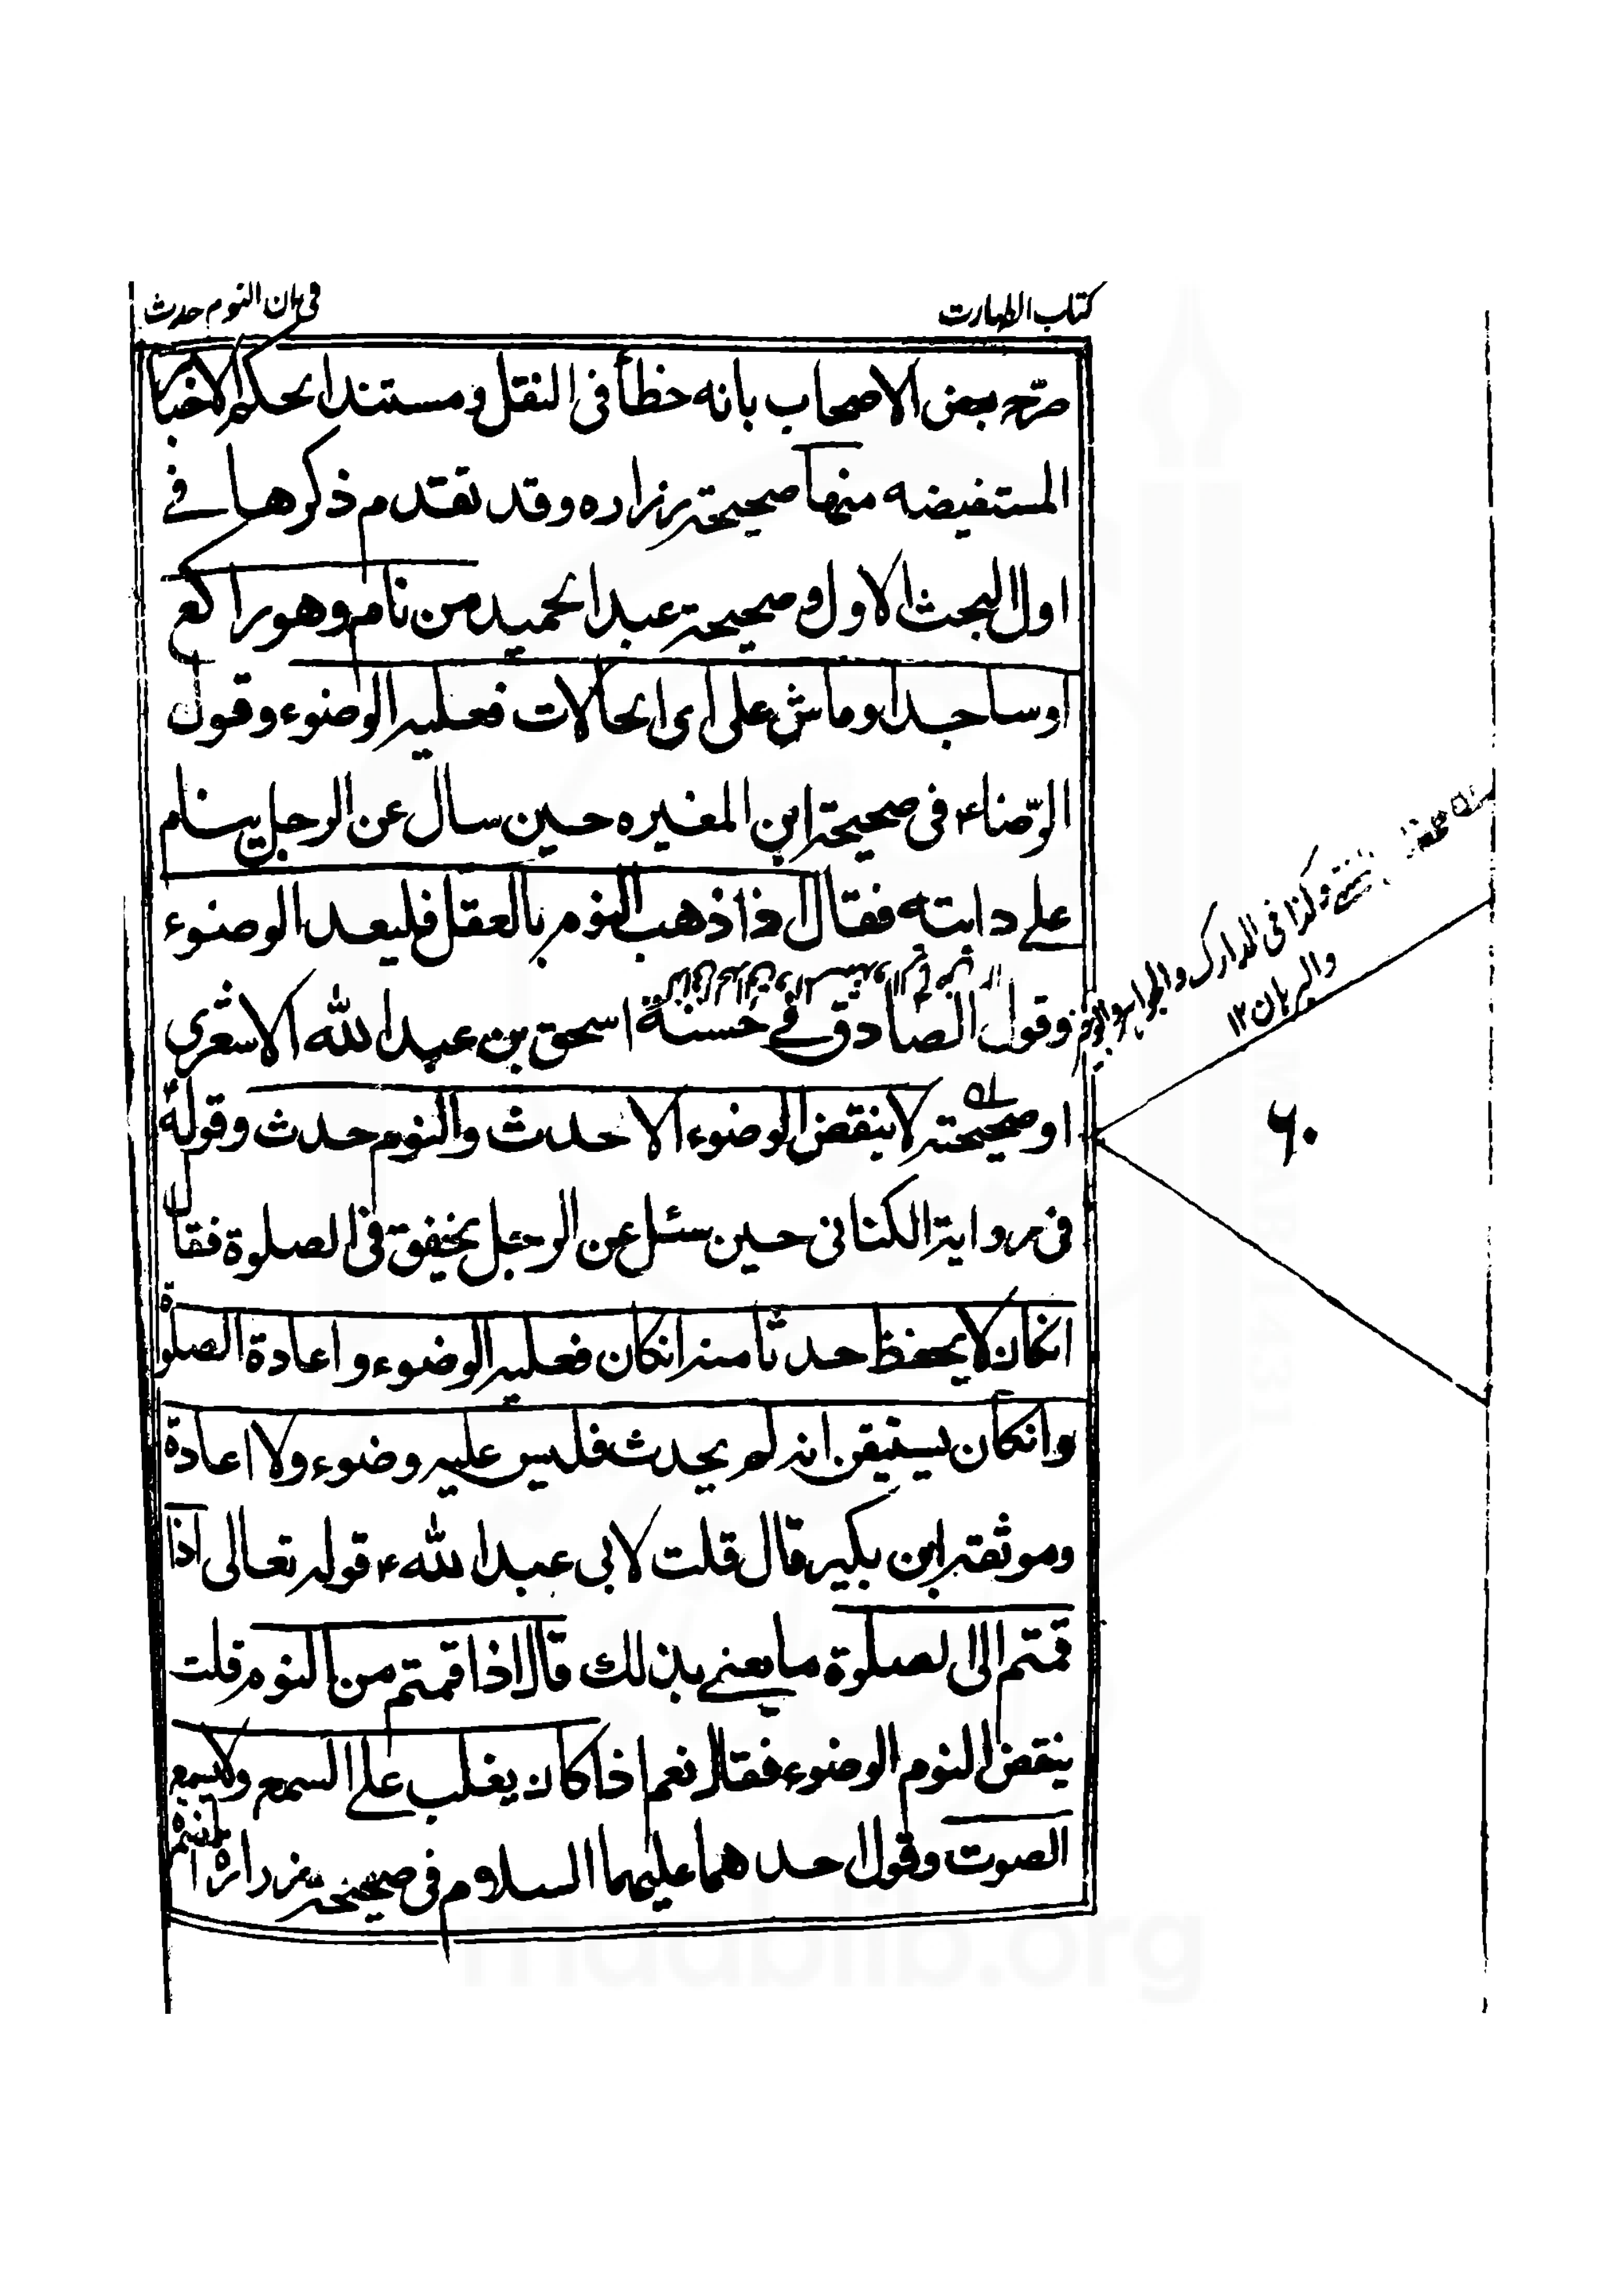 كتاب الطهارت
فی ان النوم حدث
صرّح بعض الاصحاب بانه خطأ فی النقل ومستند الحكم الاخبار
المستفيضه منها صحيحة زراره وقد تقدم ذكرها فے
اول البحث الاول وصحيحة عبد الحميد من نام وهو راكع
اوساجد او ماش على ای الحالات فعليه الوضوء وقول
الرّضاء۴ فی صحيحة ابن المغيره حين سال عن الرجل ينام
علے دابته فقال اذا ذهب النوم بالعقل فليعد الوضوء
وقول الصادق فے حسنة اسحق بن عبد الله الاشعری
او صحيحته لا ينقض الوضوء الا حدث والنوم حدث وقوله۴
فی رواية الكنانی حين سئل عن الرجل يخفق فی الصلوة فقال
انكان لا يحفظ حدثا منه انكان فعليه الوضوء واعادة الصلوة
وانكان يستيقن انه لم يحدث فليس عليه وضوء ولا اعادة
وموثقة ابن بكير قال قلت لابی عبد الله۴ قوله تعالى اذا
قمتم الى الصلوة ما يعنے بذلك قال اذا قمتم من النوم قلت
ينقض النوم الوضوء فقال نعم اذا كان يغلب علے السمع ولا يسمع
الصوت وقول احدهما عليهما السلام فی صحيحة زرارة
وكذا فی المدارك والجواهر
والبرهان۱۲
۶۰
maablib.org